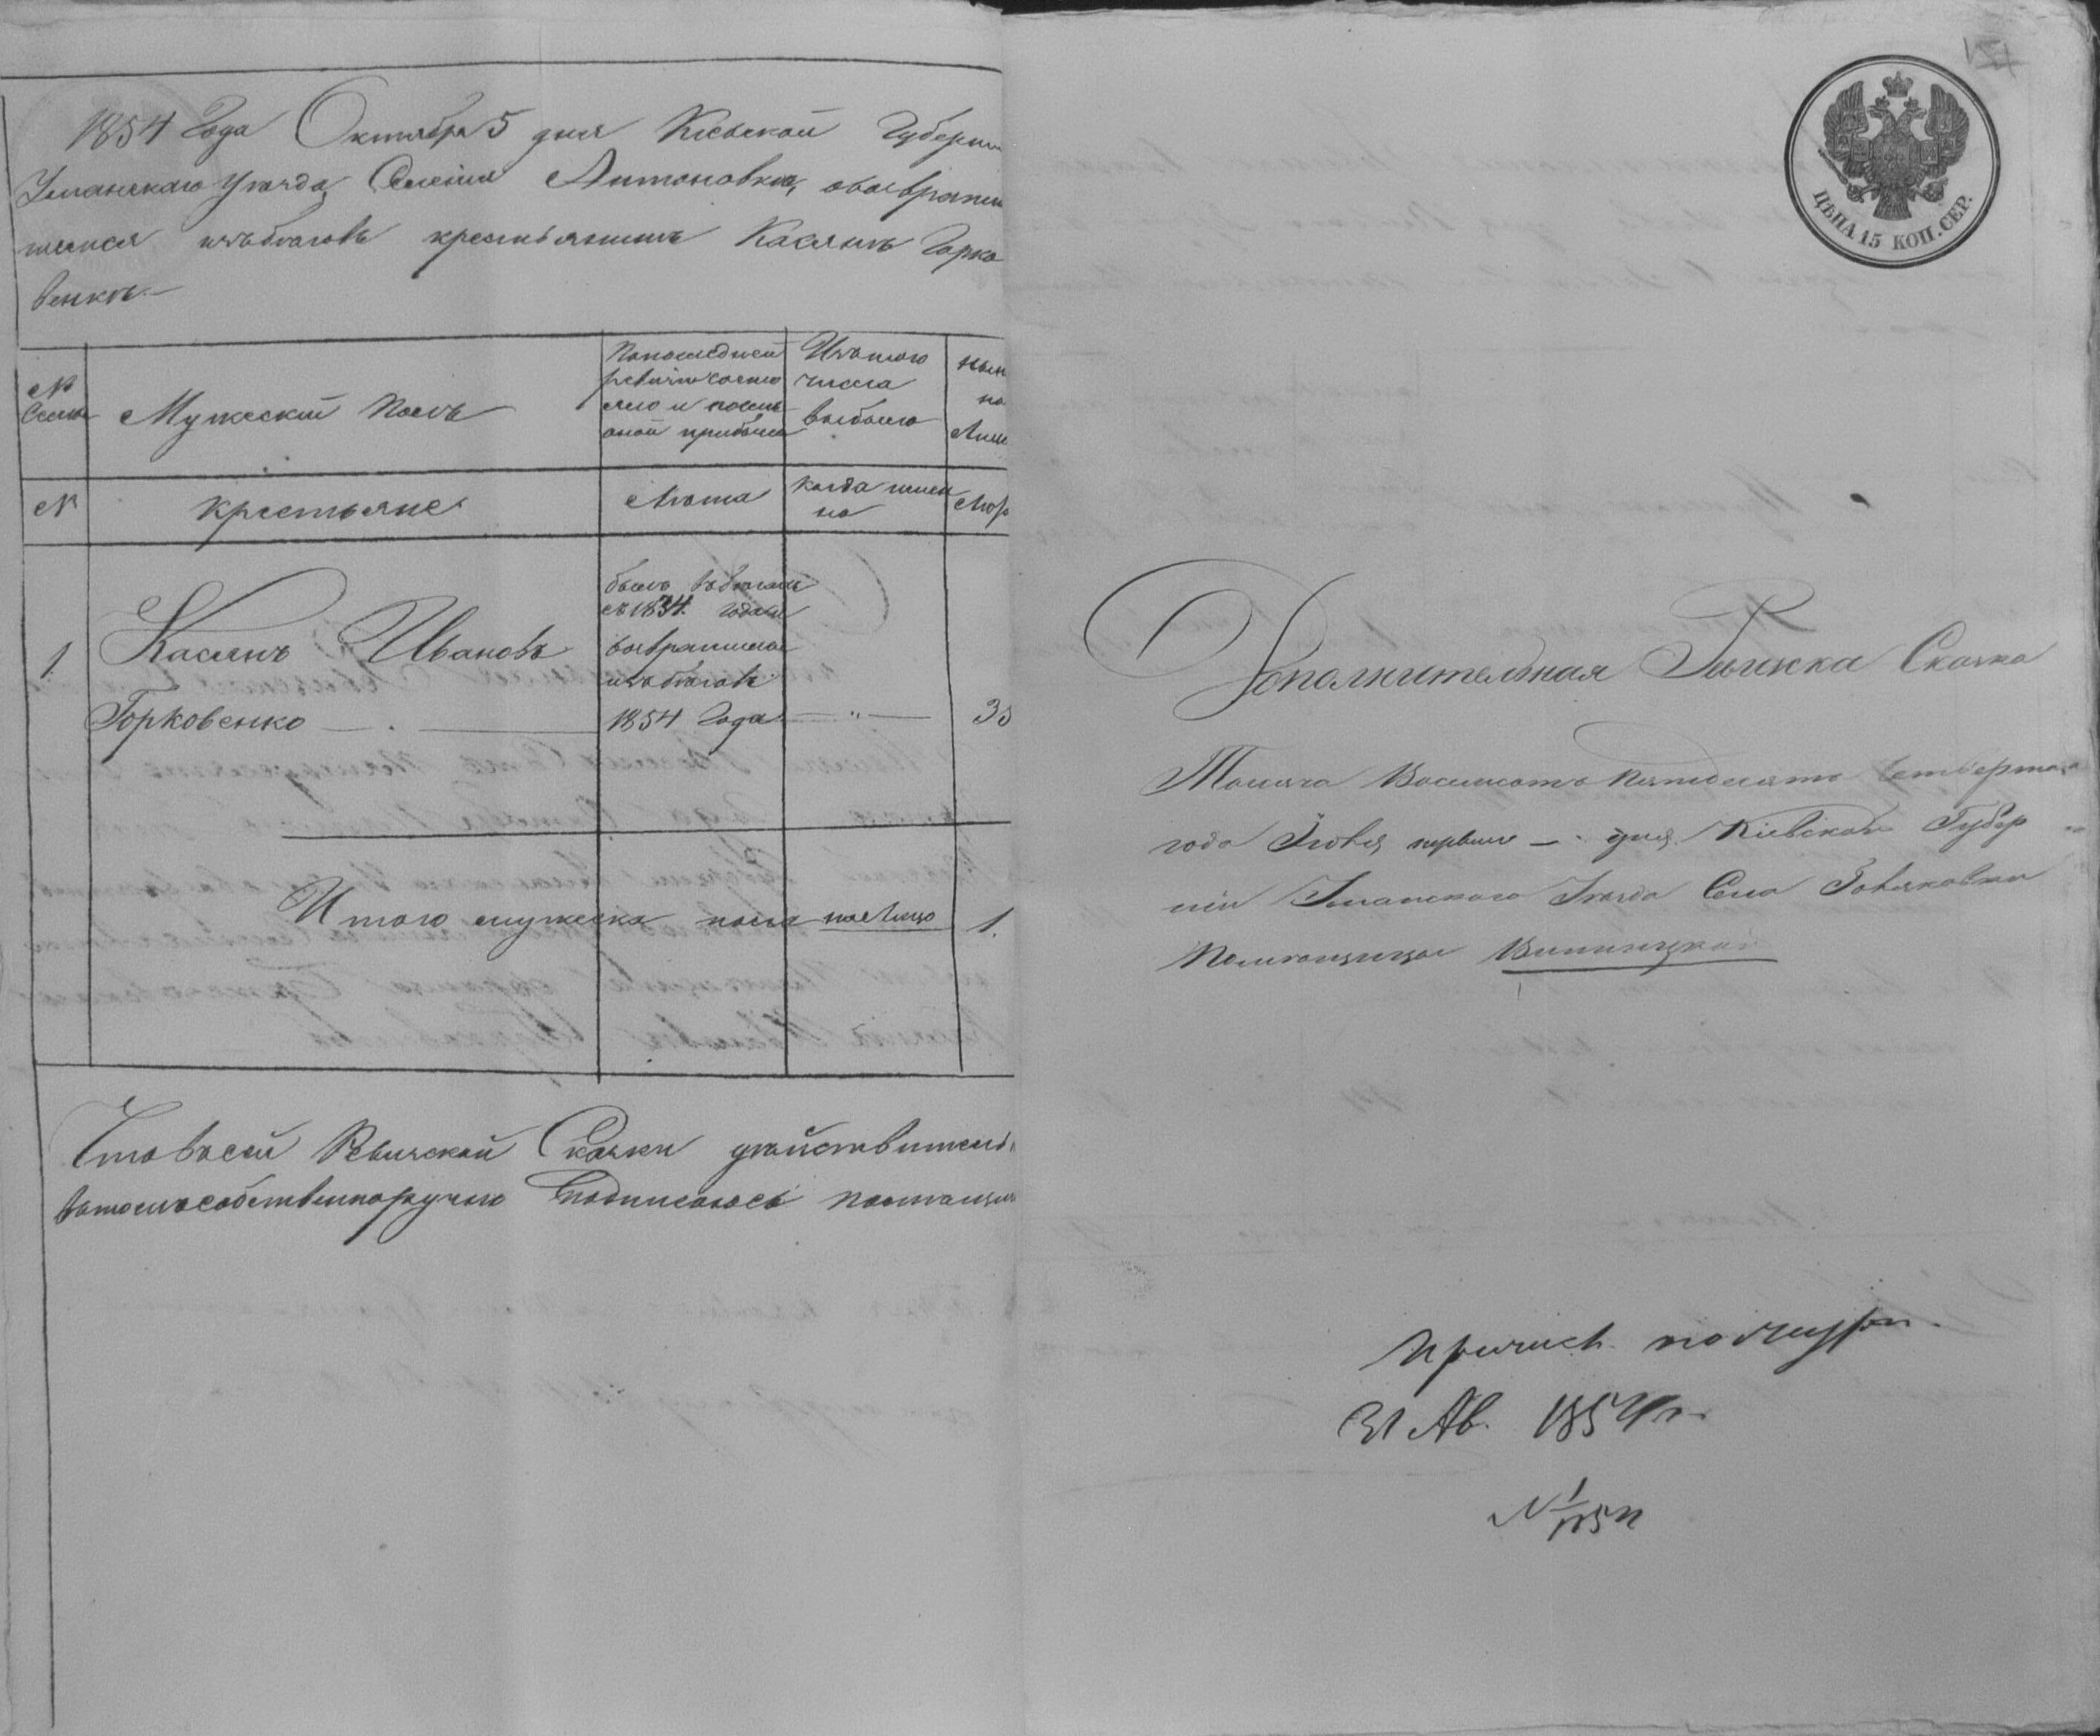 1854 Года Октября 5 дня Кіевской Губерні
Уманскаго Уѣзда Селенія Антоновки, овозврати
шемся изъ бѣговъ крестьянинѣ Касянѣ Горко
венкѣ.
№ Семьи
Мужескій Полъ
По последней ревизіи состояло и после оной прибыло
Изъ того числа выбыло
ныне на Лице
№
Крестьяне
Лѣта
когда имен но
Лѣта
1.
Касянъ Ивановъ Горковенко
былъ въ бѣгахъ съ 1834. года и возвратился изъ бѣговъ 1854 Года
"
35
Итого мужеска пола на Лицо
1.
Что въ сей Ревизской Сказки дѣйствительн
въ томъ собственноручно подписаюсь помѣщи
ЦѢНА 15 КОП. СЕР.
Дополнительная Ревижка Сказка
Тысяча Восемсотъ Пятдесятъ Четвертого
года Іюня первого дня Кіевской Губер
ніи Уманского Уѣзда Села
Помѣщицы Винницкой
31 Ав. 1854 г.
№ 1